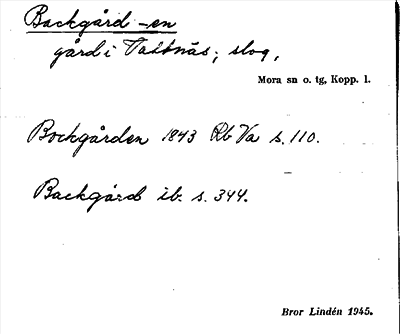 Backgård -en
gård i Vattnäs; slog,
Mora sn o. tg, Kopp. l.
Bockgården 1843 Rb Va s. 110.
Backgård ib. s. 344.
Bror Lindén 1945.